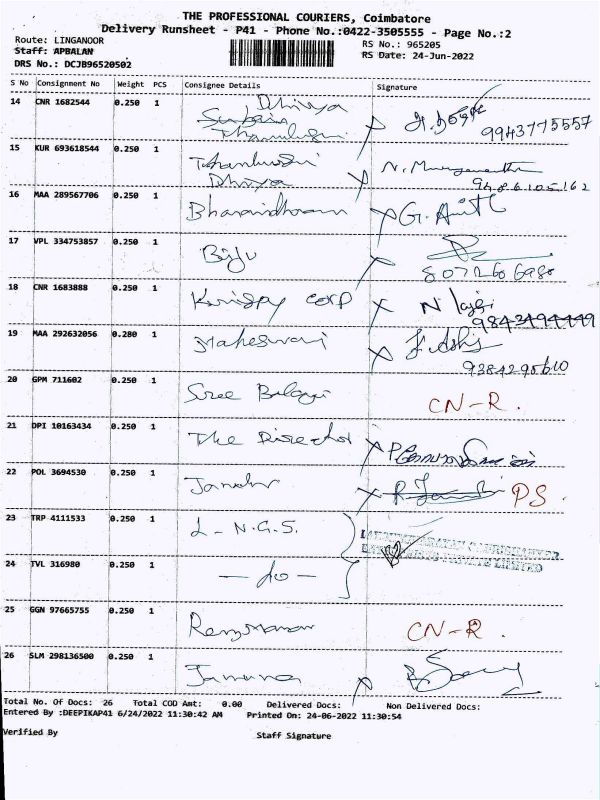 THE PROFESSIONAL COURIERS, Coimbatore
Delivery Runsheet - P41 - Phone No.:0422-3505555 - Page No.:2
Route: LINGANOOR
RS No.: 965205
Staff: APBALAN
RS Date: 24-Jun-2022
DRS No.: DCJB96520502
S No Consignment No Weight PCS Consignee Details Signature
14 CNR 1682544 0.250 1 Dhivya
9943775557
15 KUR 693618544 0.250 1
Dhivya
9486105162
16 MAA 289567706 0.250 1
17 VPL 334753857 0.250 1 Biju
8072606980
18 CNR 1683888 0.250 1 Krispy corp
9843494449
19 MAA 292632056 0.280 1 Maheswari
9384295610
20 GPM 711602 0.250 1 Sree Balaji CN-R.
21 DPI 10163434 0.250 1 The Director
22 POL 3694530 0.250 1 PS.
23 TRP 4111533 0.250 1 L-N.G.S.
24 TVL 316980 0.250 1 - do -
25 GGN 97665755 0.250 1 CN-R.
26 SLM 298136500 0.250 1 Jamuna
Total No. Of Docs: 26 Total COD Amt: 0.00 Delivered Docs: Non Delivered Docs:
Entered By :DEEPIKAP41 6/24/2022 11:30:42 AM Printed On: 24-06-2022 11:30:54
Verified By
Staff Signature